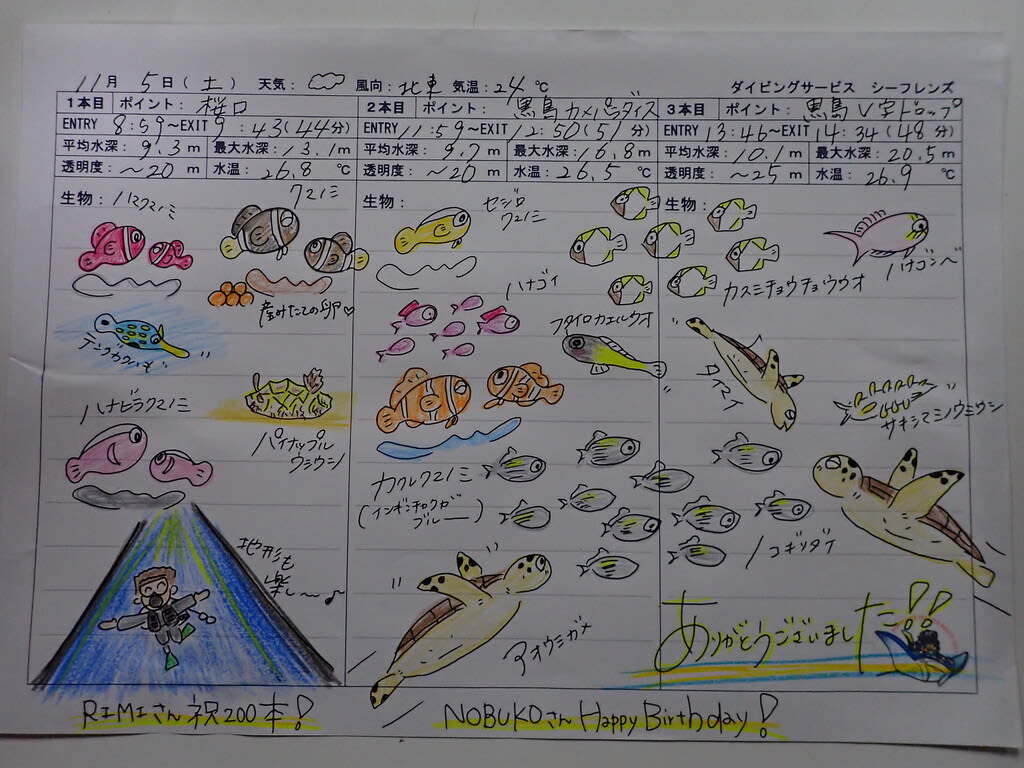 11月 5日(土) 天気: 風向: 北東 気温: 24℃ ダイビングサービス シーフレンズ
1本目 ポイント: 桜口
ENTRY 8:59~EXIT 9:43(44分)
平均水深: 9.3m 最大水深: 13.1m
透明度: ~20m 水温: 26.8℃
生物:
ハマクマノミ
クマノミ
産みたての卵♡
テングカワハギ
ハナビラクマノミ
パイナップル
ウミウシ
地形も
楽し~♪
2本目 ポイント: 黒島カメパラダイス
ENTRY 11:59~EXIT 12:50(51分)
平均水深: 9.7m 最大水深: 16.8m
透明度: ~20m 水温: 26.5℃
生物:
セジロ
クマノミ
ハナゴイ
フタイロカエルウオ
カクレクマノミ
(イソギンチャクが
ブルー)
アオウミガメ
3本目 ポイント: 黒島V字ドロップ
ENTRY 13:46~EXIT 14:34(48分)
平均水深: 10.1m 最大水深: 20.5m
透明度: ~25m 水温: 26.9℃
生物:
ハナゴンベ
カスミチョウチョウウオ
タイマイ
サキシマミノウミウシ
ノコギリダイ
ありがとうございました!!
RIMIさん祝200本!
NOBUKOさん Happy Birthday!